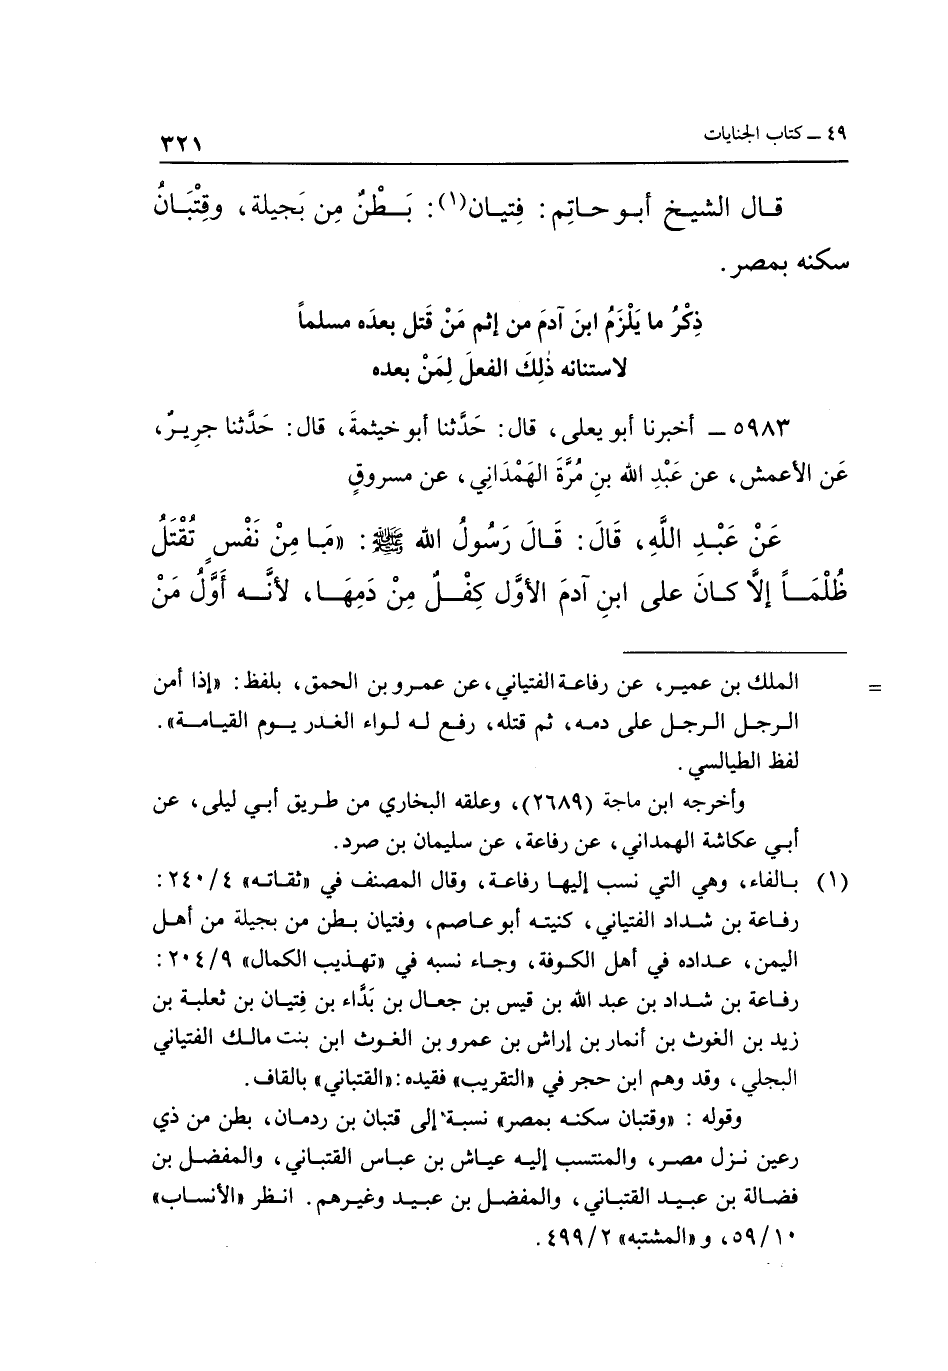 ٤٩ ـ كتاب الجنايات
٣٢١
قال الشيخ أبو حاتِم: فِتيان(١): بَطْنٌ مِن بَجيلة، وقِتْبَانُ
سكنه بمصر.
ذِكْرُ ما يَلْزَمُ ابنَ آدمَ من إثم مَنْ قَتل بعدَه مسلماً
لاستنانه ذٰلِكَ الفعلَ لِمَنْ بعده
٥٩٨٣ ـ أخبرنا أبو يعلى، قال: حَدَّثنا أبو خيثمةَ، قال: حَدَّثنا جريرٌ،
عَن الأعمش، عن عَبْدِ الله بنِ مُرَّةَ الهَمْدَاني، عن مسروقٍ
عَنْ عَبْدِ اللَّهِ، قَالَ: قَالَ رَسُولُ الله ﷺ: «مَا مِنْ نَفْسٍ تُقْتَلُ
ظُلْمَاً إلَّا كانَ على ابنِ آدمَ الأوَّل كِفْلٌ مِنْ دَمِهَا، لأنَّه أَوَّلُ مَنْ
= الملك بن عمير، عن رفاعة الفتياني، عن عمرو بن الحمق، بلفظ: «إذا أمن
الرجل الرجل على دمه، ثم قتله، رفع له لواء الغدر يوم القيامة».
لفظ الطيالسي.
وأخرجه ابن ماجة (٢٦٨٩)، وعلقه البخاري من طريق أبي ليلى، عن
أبي عكاشة الهمداني، عن رفاعة، عن سليمان بن صرد.
(١) بالفاء، وهي التي نسب إليها رفاعة، وقال المصنف في «ثقاته» ٢٤٠/٤:
رفاعة بن شداد الفتياني، كنيته أبو عاصم، وفتيان بطن من بجيلة من أهل
اليمن، عداده في أهل الكوفة، وجاء نسبه في «تهذيب الكمال» ٢٠٤/٩:
رفاعة بن شداد بن عبد الله بن قيس بن جعال بن بَدَّاء بن فِتيان بن ثعلبة بن
زيد بن الغوث بن أنمار بن إراش بن عمرو بن الغوث ابن بنت مالك الفتياني
البجلي، وقد وهم ابن حجر في «التقريب» فقيده: «القتباني» بالقاف.
وقوله: «وقتبان سكنه بمصر» نسبة إلى قتبان بن ردمان، بطن من ذي
رعين نزل مصر، والمنتسب إليه عياش بن عباس القتباني، والمفضل بن
فضالة بن عبيد القتباني، والمفضل بن عبيد وغيرهم. انظر «الأنساب»
٥٩/١٠، و«المشتبه» ٤٩٩/٢.